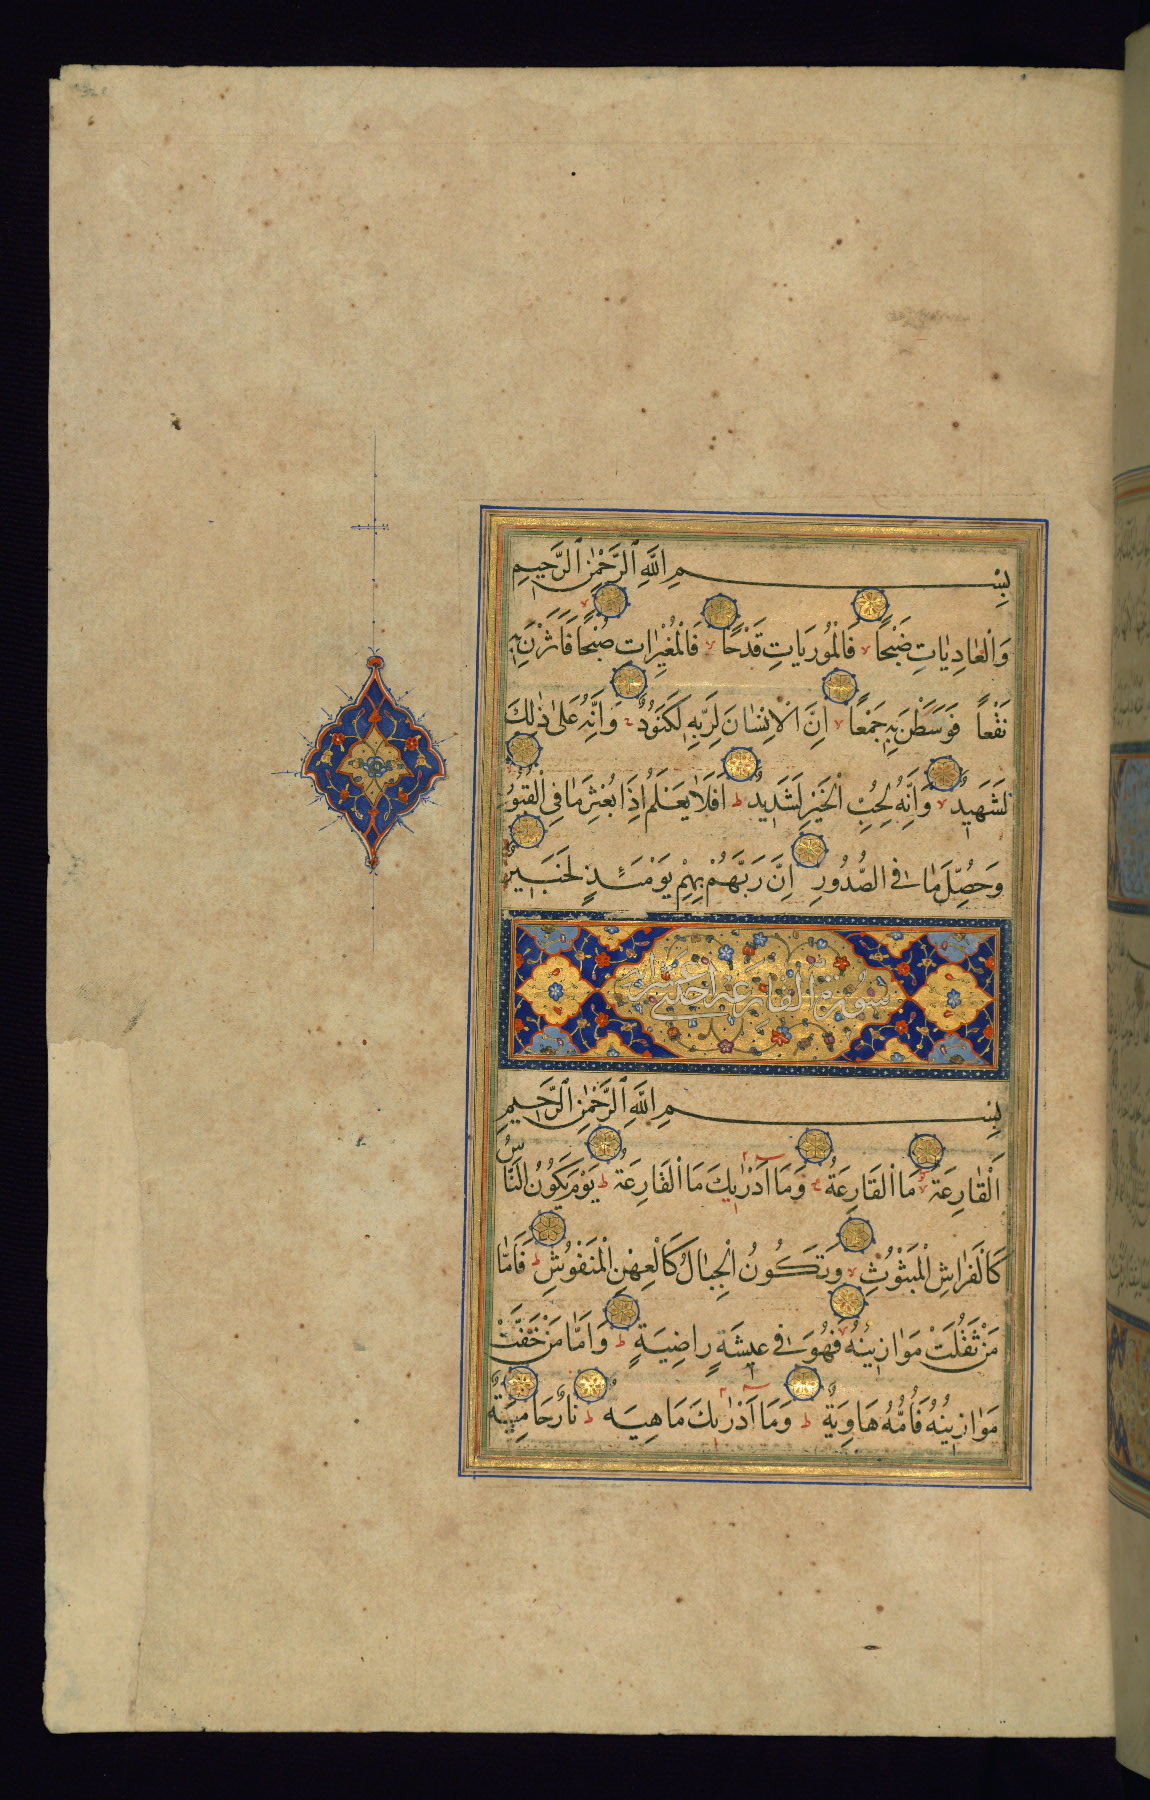 بِسْمِ اللَّهِ الرَّحْمٰنِ الرَّحِيمِ
وَالْعَادِيَاتِ ضَبْحًا فَالْمُورِيَاتِ قَدْحًا فَالْمُغِيرَاتِ صُبْحًا فَاَثَرْنَ بِهِ
نَقْعًا فَوَسَطْنَ بِهِ جَمْعًا اِنَّ الْاِنْسَانَ لِرَبِّهِ لَكَنُودٌ وَاِنَّهُ عَلٰى ذٰلِكَ
لَشَهِيدٌ وَاِنَّهُ لِحُبِّ الْخَيْرِ لَشَدِيدٌ اَفَلَا يَعْلَمُ اِذَا بُعْثِرَ مَا فِى الْقُبُورِ
وَحُصِّلَ مَا فِى الصُّدُورِ اِنَّ رَبَّهُمْ بِهِمْ يَوْمَئِذٍ لَخَبِيرٌ
سورة القارعة احدى عشر اية
بِسْمِ اللَّهِ الرَّحْمٰنِ الرَّحِيمِ
اَلْقَارِعَةُ مَا الْقَارِعَةُ وَمَا اَدْرٰيكَ مَا الْقَارِعَةُ يَوْمَ يَكُونُ النَّاسُ
كَالْفَرَاشِ الْمَبْثُوثِ وَتَكُونُ الْجِبَالُ كَالْعِهْنِ الْمَنْفُوشِ فَاَمَّا
مَنْ ثَقُلَتْ مَوَازِينُهُ فَهُوَ فِى عِيشَةٍ رَاضِيَةٍ وَاَمَّا مَنْ خَفَّتْ
مَوَازِينُهُ فَاُمُّهُ هَاوِيَةٌ وَمَا اَدْرٰيكَ مَا هِيَهْ نَارٌ حَامِيَةٌ